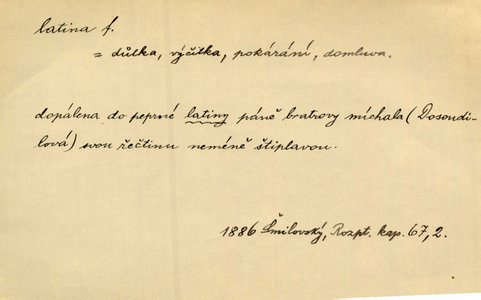 latina f.
= důtka, výčitka, pokárání, domluva.
dopálena do peprné latiny páně bratrovy míchala (Dosoudi-
lová) svou řečtinu neméně štiplavou.
1886 Šmilovský, Rozpt. kap. 67, 2.